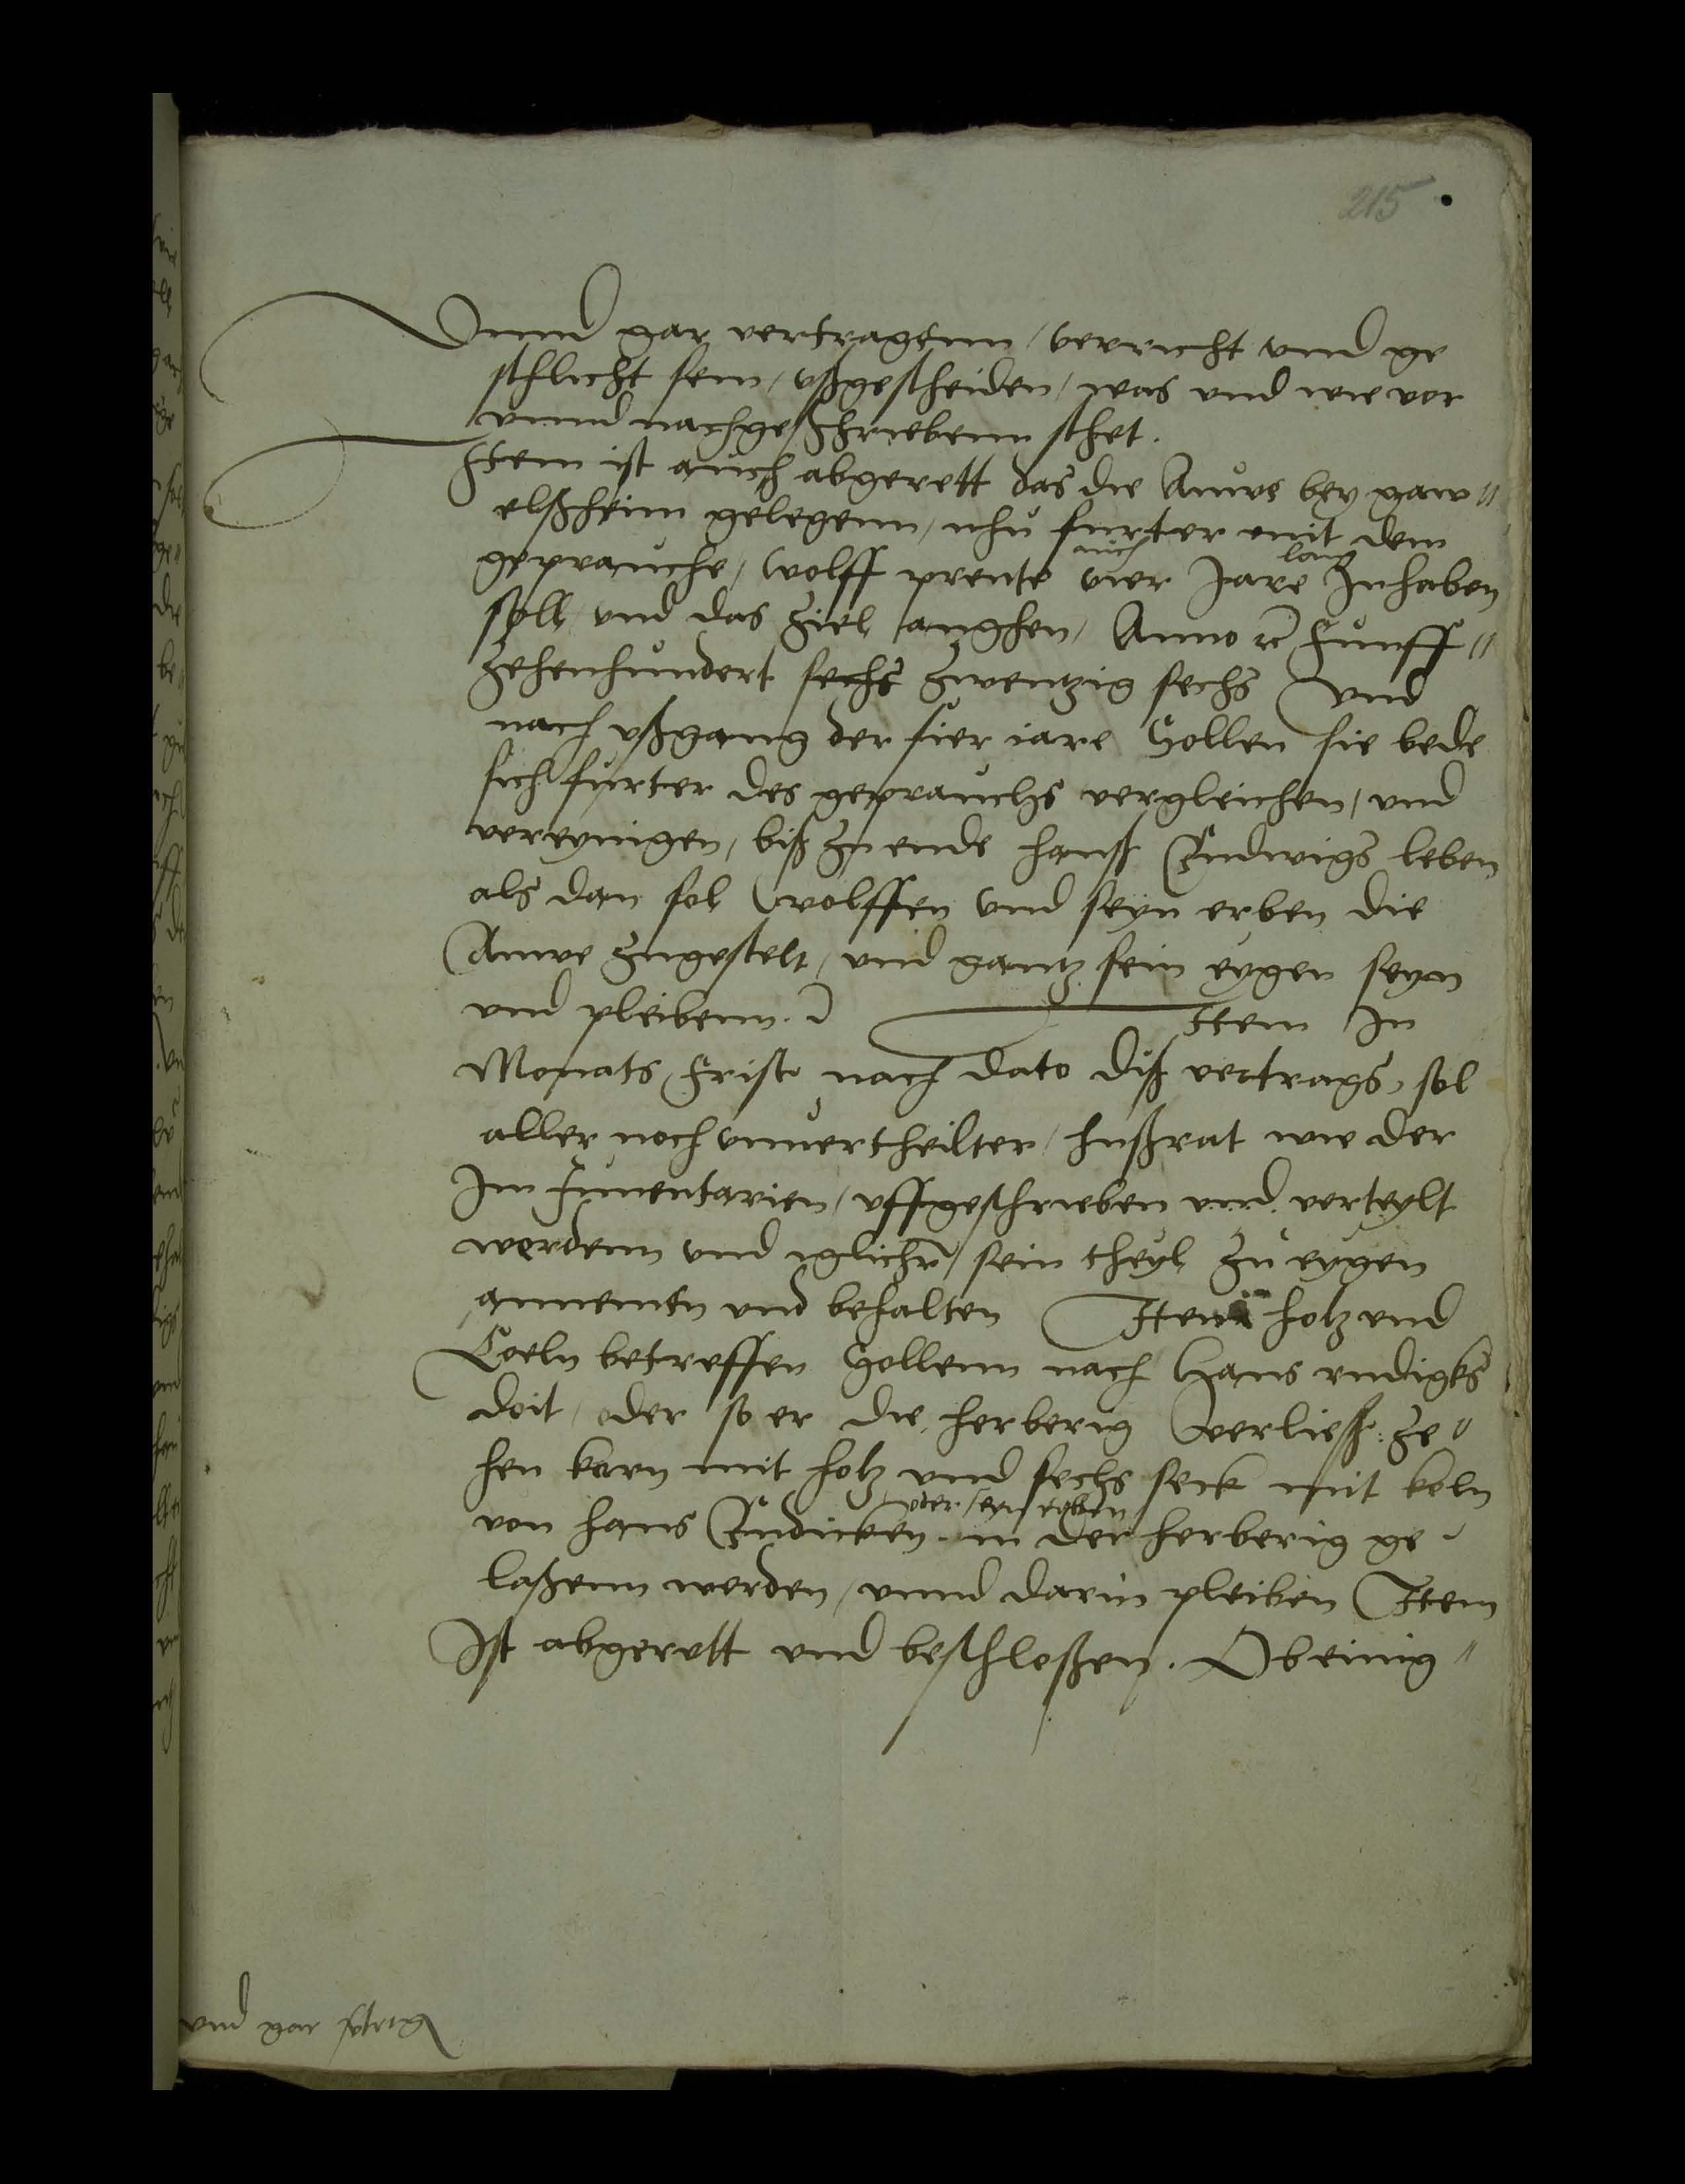 215
Vnnd gar vertragenn / verricht vnd ge
schlicht sein / vßgescheiden / was vnd wie vor
vnnd nachgeschriebenn sthet.
Item ist auch abgerett das die Auwe bey gaw"
elßheim gelegenn / nhu furter mit dem
auch lang
geprauche / wolff prente vier Jare Inhaben
soll / vnd das Ziel anghen / Anno rc̃ funff"
Zehenhundert sechs Zwentzig sechs vnd
nach vßgang der fier iare Sollen sie bede
sich furter des geprauchs vergleichen / vnd
vereynigen / biß zu ende hanß Ludwigs leben
als dan sol wolffen vnd seyn erben die
Auwe Zugestelt / vnd gantz sein eygen seyn
vnd pleibenn. Item In
Monats frist nach dato diß vertrags sol
aller noch vnuertheilter / hußrat wie der
Im Inuentarien / vffgeschrieben vnd verteylt
werdenn vnd iglichr̃ / sein theyl Zu eygen
annemen vnd behalten Item holtz vnd
Coeln betreffen Sollenn nach Hans
doit / oder so er die herberig verließ: Ze"
hen karn mit holtz vnd sechs seck mit koln
oder seyn erben
von hans Ludicken in der herberig ge-
laßenn werden / vnnd darin pleiben Item
Ist abgerett vnd beschloßen. Obeinig"
vnd gar